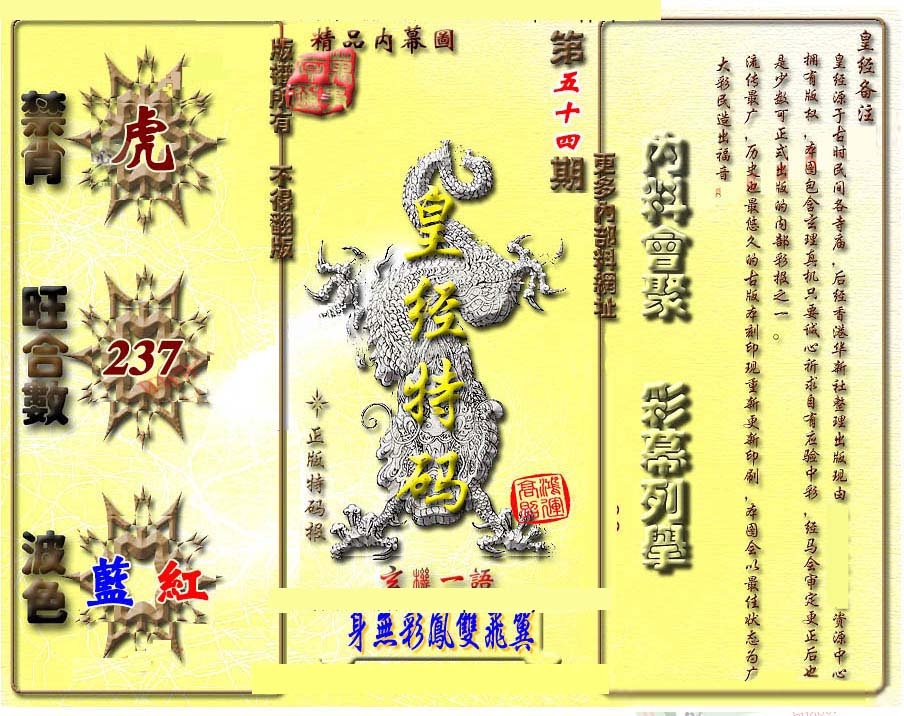 禁肖
虎
旺合數
237
波色
藍 紅
版權所有 不得翻版
精品内幕圖
第五十四期
皇经特码
正版特码报
鴻運高照
玄機一語
身無彩鳳雙飛翼
更多內部料網址
内料會聚 彩幕列舉
皇经备注
皇经源于古时民间各寺庙，后经香港华新社整理出版现由 资源中心
拥有版权，本图包含玄理真机只要诚心祈求自有应验中彩，经马会审定更正后也
是少数可正式出版的内部彩报之一。
流传最广，历史也最悠久的古版本刻印现重新更新印刷，本图会以最佳状态为广
大彩民造出福音